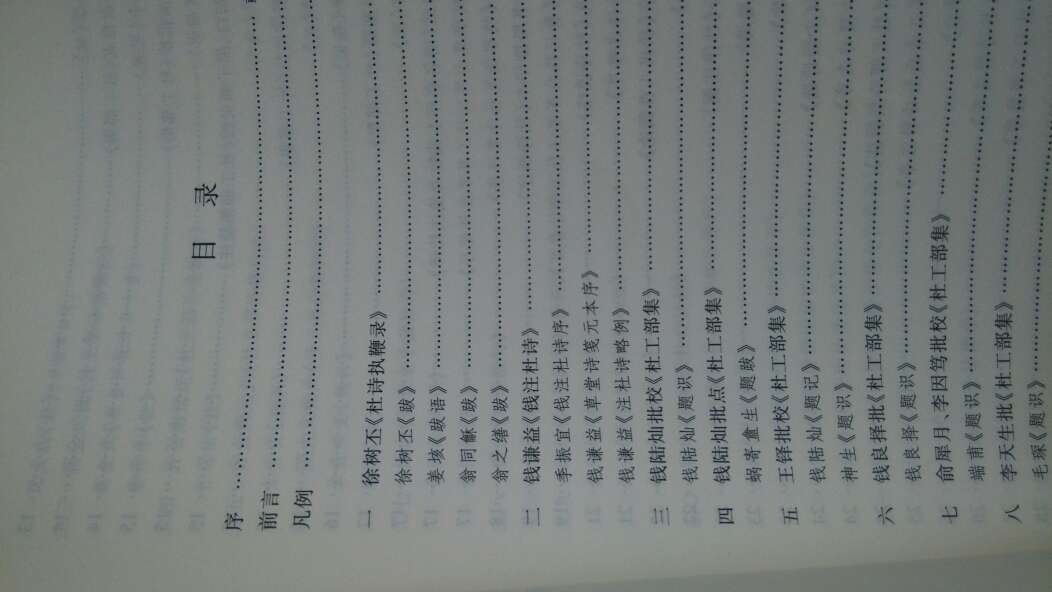 目 录
序
前言
凡例
一 徐树丕《杜诗执鞭录》
徐树丕《跋》
姜垓《跋语》
翁同龢《跋》
翁之缮《跋》
二 钱谦益《钱注杜诗》
季振宜《钱注杜诗序》
钱谦益《草堂诗笺元本序》
钱谦益《注杜诗略例》
三 钱陆灿批校《杜工部集》
钱陆灿《题识》
四 钱陆灿批点《杜工部集》
蜗寄盒生《题跋》
五 王铎批校《杜工部集》
钱陆灿《题记》
神生《题识》
六 钱良择批《杜工部集》
钱良择《题识》
七 俞犀月、李因笃批校《杜工部集》
端甫《题识》
八 李天生批《杜工部集》
毛琛《题识》